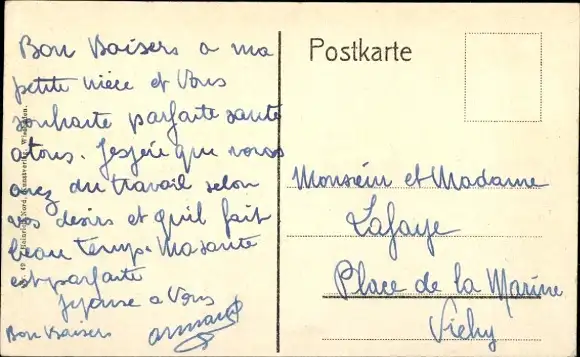 Bon Baisers a ma
petite nièce et Vous
souhaite parfaite santé
atous. Jespère que vous
avez du travail selon
vos désirs et quil fait
beau temps. Masanté
est parfaite
Jpense a Vous
Bon Baisers armand
Postkarte
Monsieur et Madame
Lafaye
Place de la Marine
Vichy